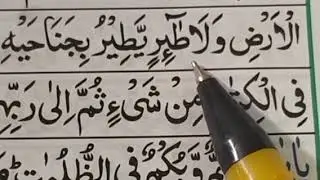 الْاَرْضِ وَلَا طٰٓئِرٍ يَّطِيْرُ بِجَنَاحَيْهِ
فِي الْكِتٰبِ مِنْ شَيْءٍ ثُمَّ اِلٰى رَبِّهِمْ
فِي الظُّلُمٰتِ